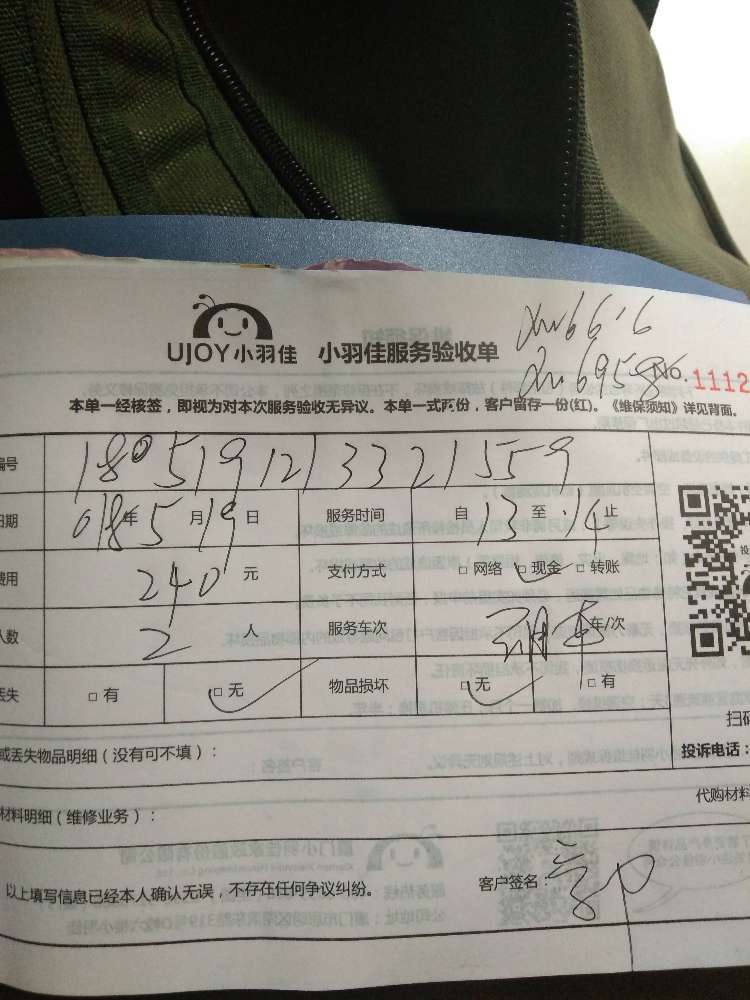 UJOY小羽佳 小羽佳服务验收单
No. 1112
本单一经核签，即视为对本次服务验收无异议。本单一式两份，客户留存一份(红)。《维保须知》详见背面。
编号 180519121332 1559
日期 018年5月19日 服务时间 自13至14止
费用 240元 支付方式 □网络 □现金 □转账
人数 2人 服务车次 车/次
丢失 □有 □无 物品损坏 □无 □有
扫码
或丢失物品明细（没有可不填）： 投诉电话：
代购材料
材料明细（维修业务）：
以上填写信息已经本人确认无误，不存在任何争议纠纷。 客户签名：